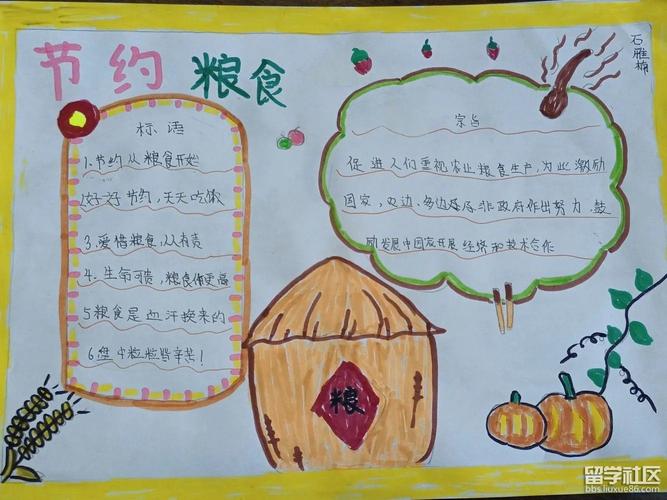 节约粮食
石雁楠
标语
1.节约从粮食开始
2好好节约，天天吃饭
3.爱惜粮食,人人有责
4.生命可贵,粮食价更高
5粮食是血汗换来的
6.盘中粒粒皆辛苦！
宗旨
促进人们重视农业粮食生产,为此激励
国家,双边、多边及非政府作出努力.鼓
励发展中国家开展经济和技术合作
粮
留学社区
bbs.liuxue86.com